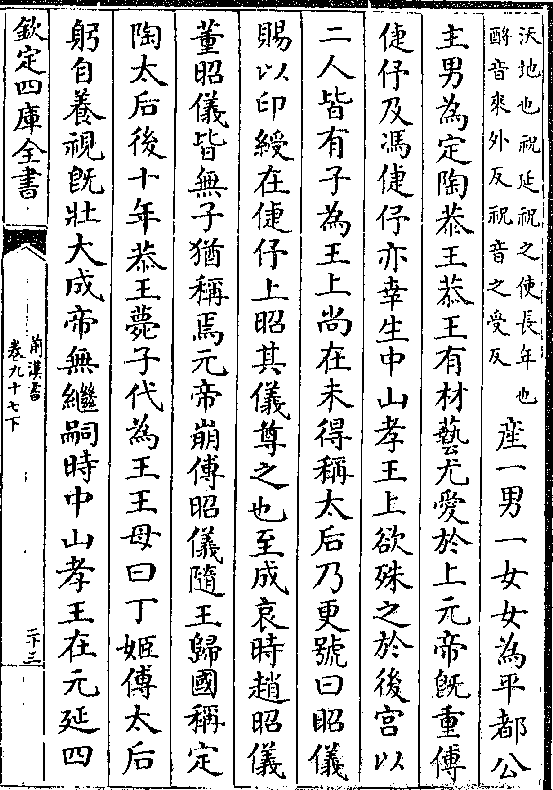 沃地也祝延祝之使長年也
酹音來外反祝音之受反
產一男一女女為平都公
主男為定陶恭王恭王有材藝尤愛於上元帝旣重傅
倢伃及馮倢伃亦幸生中山孝王上欲殊之於後宮以
二人皆有子為王上尚在未得稱太后乃更號曰昭儀
賜以印綬在倢伃上昭其儀尊之也至成哀時趙昭儀
董昭儀皆無子猶稱焉元帝崩傅昭儀隨王歸國稱定
陶太后後十年恭王薨子代為王王母曰丁姬傅太后
躬自養視旣壯大成帝無繼嗣時中山孝王在元延四
欽定四庫全書
前漢書
卷九十七下
二十三